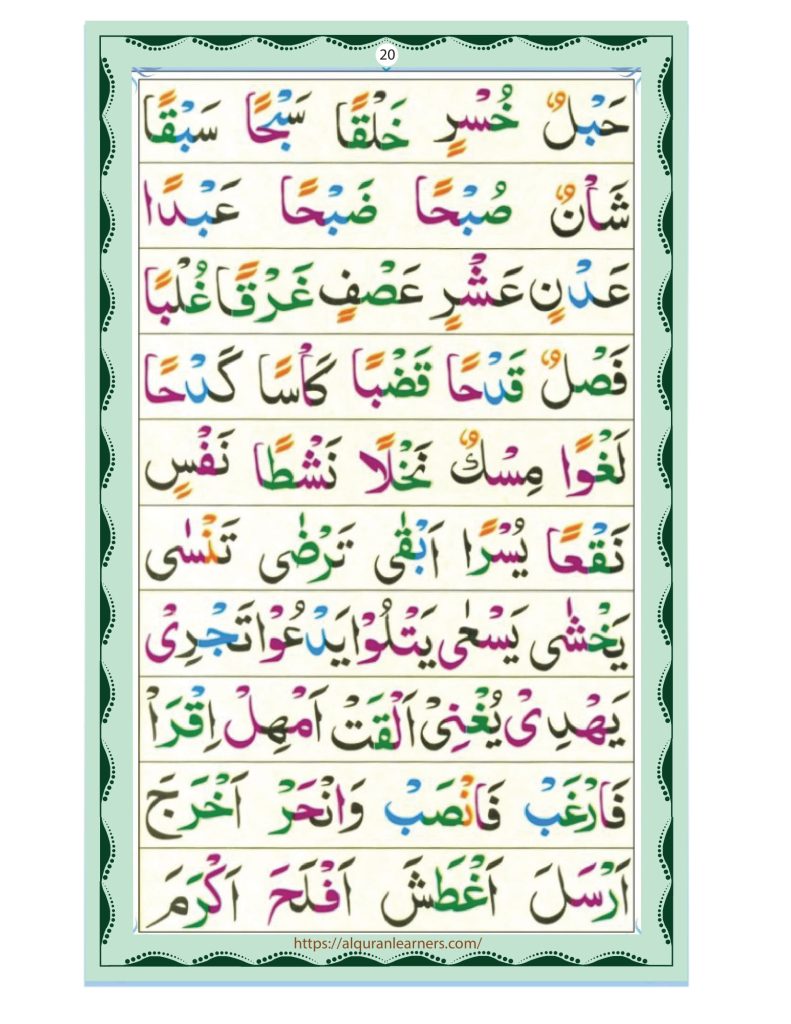 20
حَبْلٌ خُسْرٍ خَلْقًا سَبْحًا سَبْقًا
شَأْنٌ صُبْحًا ضَبْحًا عَبْدًا
عَدْنٍ عَشْرٍ عَصْفٍ غَرْقًا غُلْبًا
فَصْلٌ قَدْحًا قَضْبًا كَأْسًا كَدْحًا
لَغْوًا مِسْكٌ نَخْلًا نَشْطًا نَفْسٍ
نَقْعًا يُسْرًا اَبْقٰى تَرْضٰى تَنْسٰى
يَخْشٰى يَسْعٰى يَتْلُوْا يَدْعُوْا تَجْرِىْ
يَهْدِىْ يُغْنِىْ اَلْقَتْ اَمْهِلْ اِقْرَاْ
فَارْغَبْ فَانْصَبْ وَانْحَرْ اَخْرَجَ
اَرْسَلَ اَغْطَشَ اَفْلَحَ اَكْرَمَ
https://alquranlearners.com/